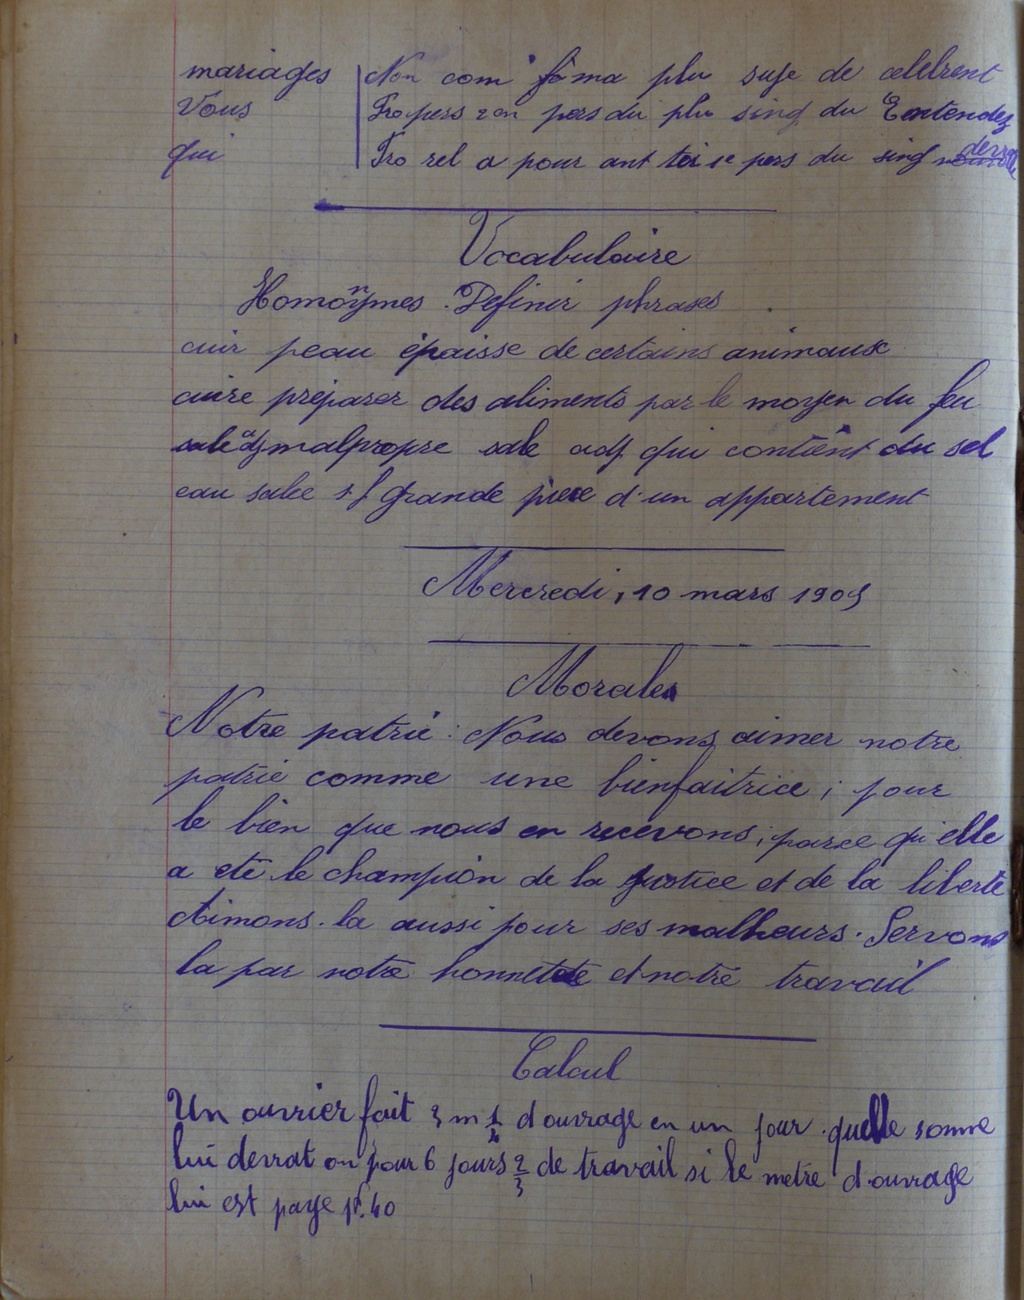 mariages Non com fé ma plu suje de celebrent
Vous Pro pers 2en pers du plu sing du Entendez
qui Pro rel a pour ant toi 2e pers du sing
Vocabulaire
Homonymes. Definir phrases
cuir peau épaisse de certains animaux
cuire préparer des aliments par le moyen du feu
sale adj malpropre sale adj qui contient du sel
eau salee s f grande piece d'un appartement
Mercredi, 10 mars 1909
Morale
Notre patrie : Nous devons aimer notre
patrie comme une bienfaitrice ; pour
le bien que nous en recevons ; parce qu'elle
a ete le champion de la justice et de la liberte
Aimons-la aussi pour ses malheurs. Servons
la par notre honnetete et notre travail
Calcul
Un ouvrier fait 3 m 1/4 d ouvrage en un jour. quelle somme
lui devrat on pour 6 jours 2/3 de travail si le metre d.ouvrage
lui est paye 1f.40